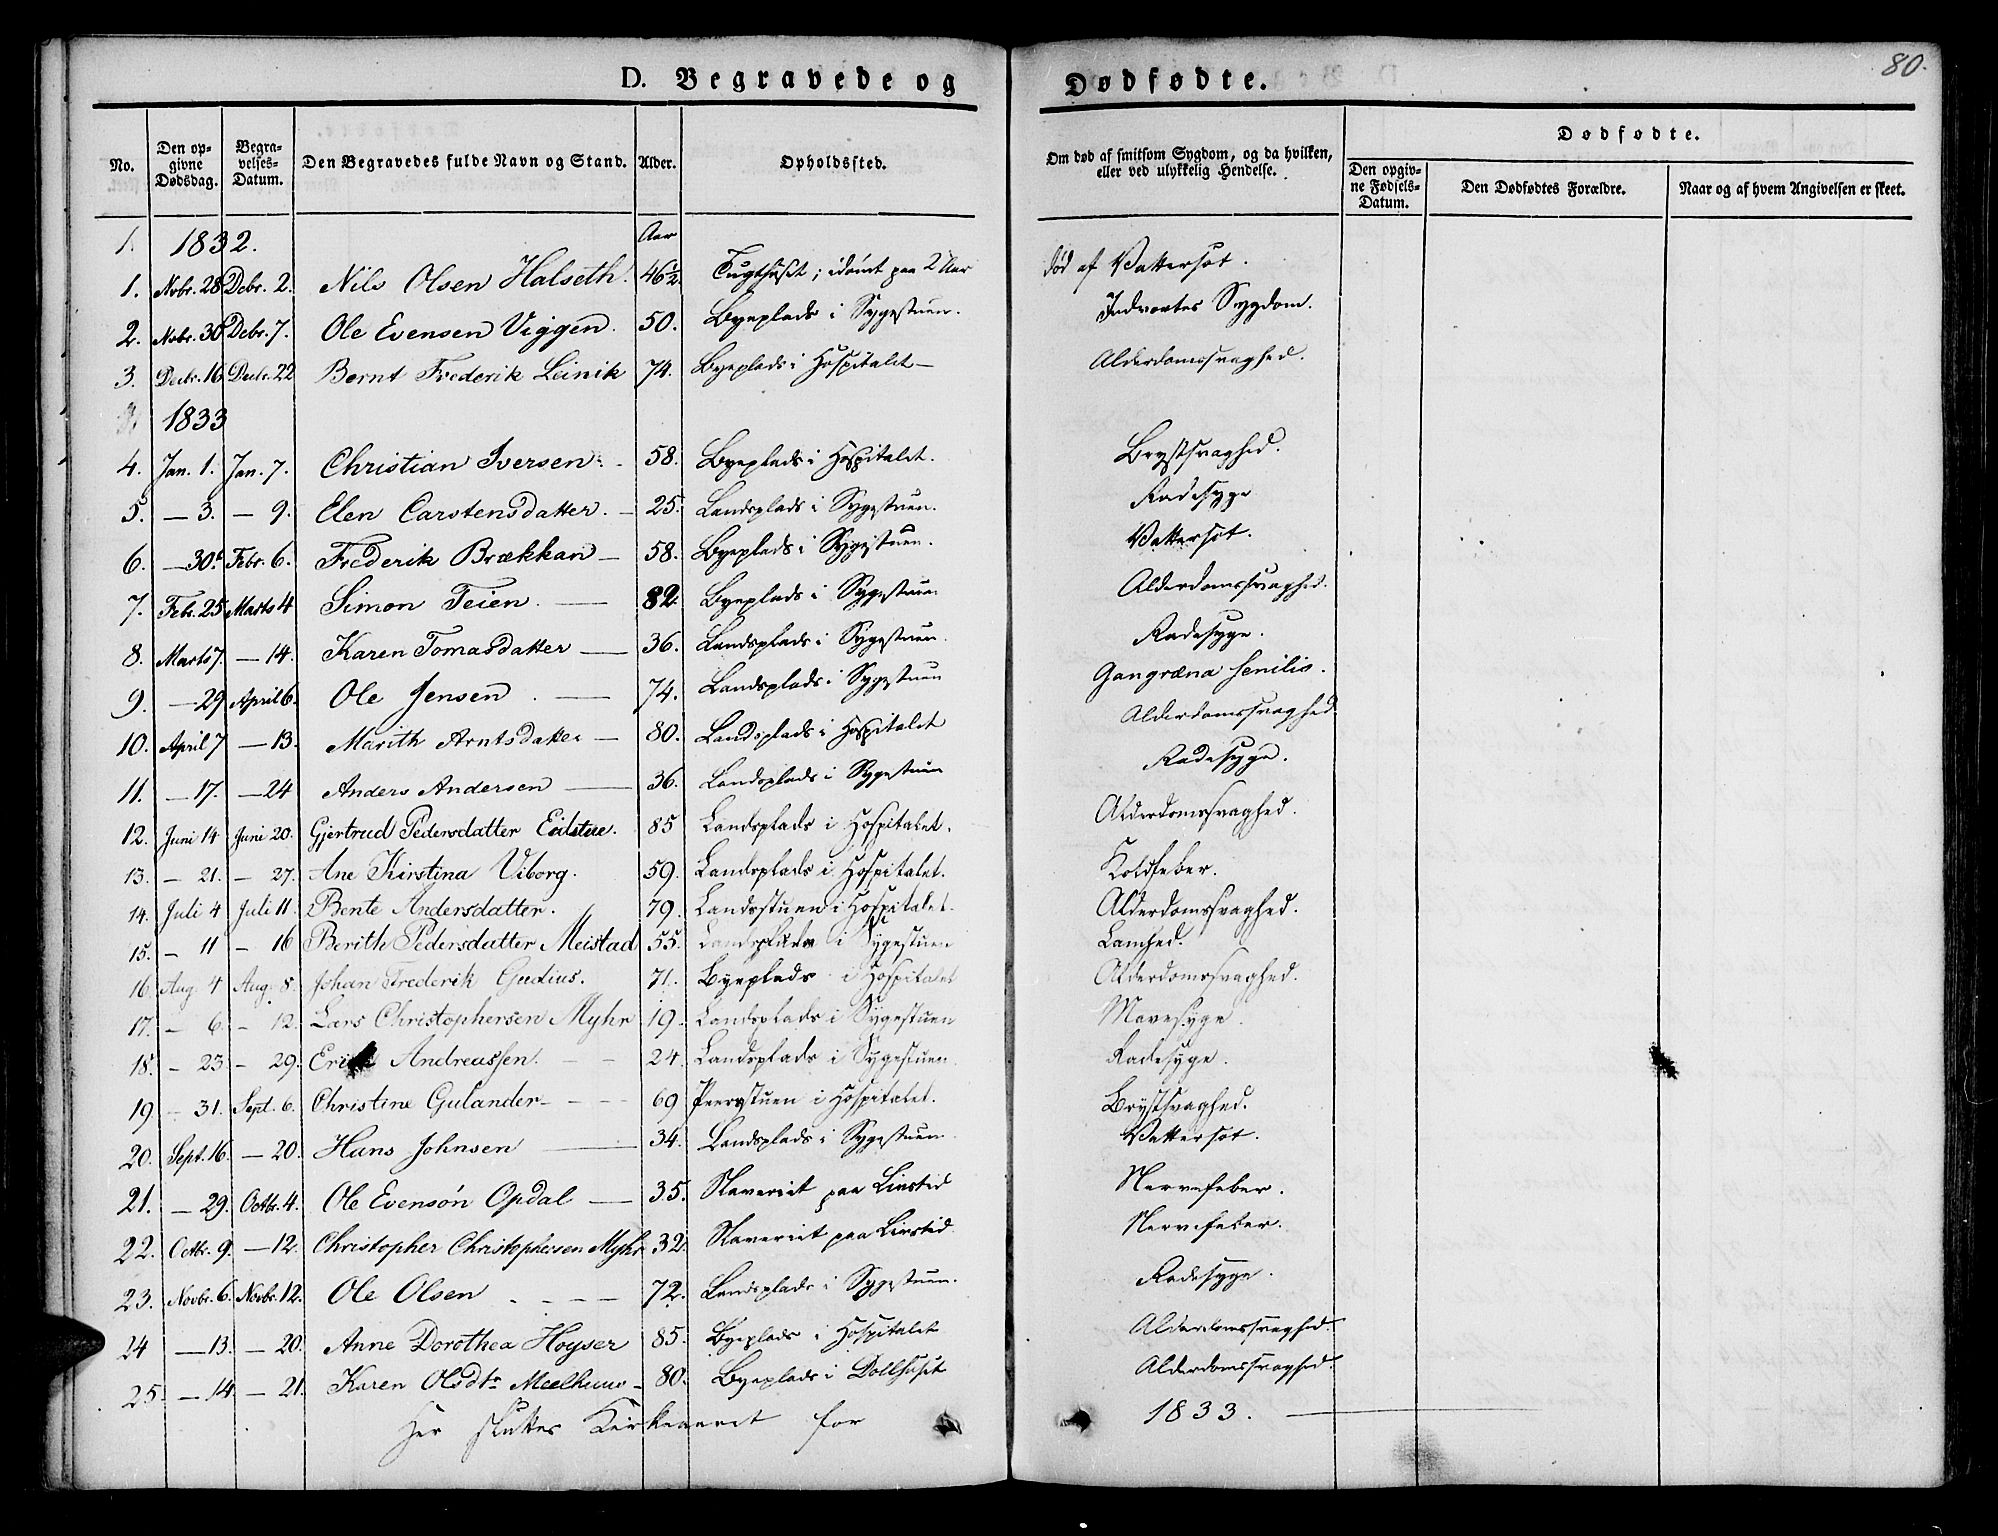 80.
D. Begravede og Dødfødte.
No. Den opgivne Dødsdag. Begravelses-Datum. Den Begravedes fulde Navn og Stand. Alder. Opholdssted. Om død af smitsom Sygdom, og da hvilken, eller ved ulykkelig Hendelse. Dødfødte. Den opgivne Fødsels-Datum. Den Dødfødtes Forældre. Naar og af hvem Angivelsen er skeet.
1. 1832. Aar
1. Novbr. 28 Debr. 2. Nils Olsen Halseth. 46½ Tugthuset; idømt paa 2 Aar død af Vattersot.
2. Novbr. 30 Debr. 7. Ole Evensen Viggen. 50. Byeplads i Sygestuen. Indvortes Sygdom.
3. Decbr. 16 Decbr. 22 Bernt Frederik Leinik 74. Byeplads i Hospitalet — Alderdomssvaghed.
1833
4. Jan. 1. Jan. 7. Christian Iversen 58. Byeplads i Hospitalet. Brystsvaghed.
5. — 3. — 9. Elen Carstensdatter. — 25. Landsplads i Sygestuen. Radesyge
6. — 30. Febr. 6. Frederik Brækkan — 58. Byeplads i Sygestuen. Vattersot.
7. Febr. 25 Marts 4 Simon Teien. — 82 Byeplads i Sygestuen Alderdomssvaghed.
8. Marts 7. — 14. Karen Tomasdatter — 36. Landsplads i Sygestuen. Radesyge.
9. — 29 April 6. Ole Jensen. — 74. Landsplads i Sygestuen Gangræna senilis.
10. April 7 — 13. Marith Arntsdatter — 80. Landsplads i Hospitalet Alderdomssvaghed.
11. — 17. — 24 Anders Andersen — 36. Landsplads i Sygestuen Radesyge.
12. Juni 14 Juni 20. Gjertrud Pedersdatter 85 Landsplads i Hospitalet. Alderdomssvaghed.
13. — 21. — 27. Ane Kirstina Viborg. 59. Landsplads i Hospitalet. Koldfeber.
14. Juli 4 Juli 11. Bente Andersdatter. 79. Landsstuen i Hospitalet. Alderdomssvaghed.
15. — 11 — 16 Berith Pedersdatter Meistad 55. Landsplads i Sygestuen Lamhed.
16. Aug. 4 Aug. 8. Johan Frederik Gudius. 71. Byeplads i Hospitalet Alderdomssvaghed.
17. — 6. — 12. Lars Christophersen Myhr 19. Landsplads i Sygestuen Mavesyge.
18. — 23 — 29. Erik Andreassen. — 24. Landsplads i Sygestuen. Radesyge.
19 — 31. Sept. 6. Christine Gulander — 69 Peersstuen i Hospitalet. Brystsvaghed.
20. Sept. 16. — 20. Hans Johnsen — 34. Landsplads i Sygestuen. Vattersot.
21. — 29. Octbr. 4. Ole Evensøn Opdal — 35. Slaveriet paa Livstid Nervefeber.
22. Octbr. 9. — 12. Christopher Christophersen Myhr 32. Slaveriet paa Livstid Nervefeber.
23. Novbr. 6. Novbr. 12. Ole Olsen — 72. Landsplads i Sygestuen. Radesyge.
24 — 13. — 20. Anne Dorothea Hoyser 85. Byeplads i Hospitalet Alderdomssvaghed.
25. — 14. — 21. Karen Olsdtr Meelhuus 80. Byeplads i Dollhuset Alderdomssvaghed.
Her slutter Kirkeaaret for 1833.